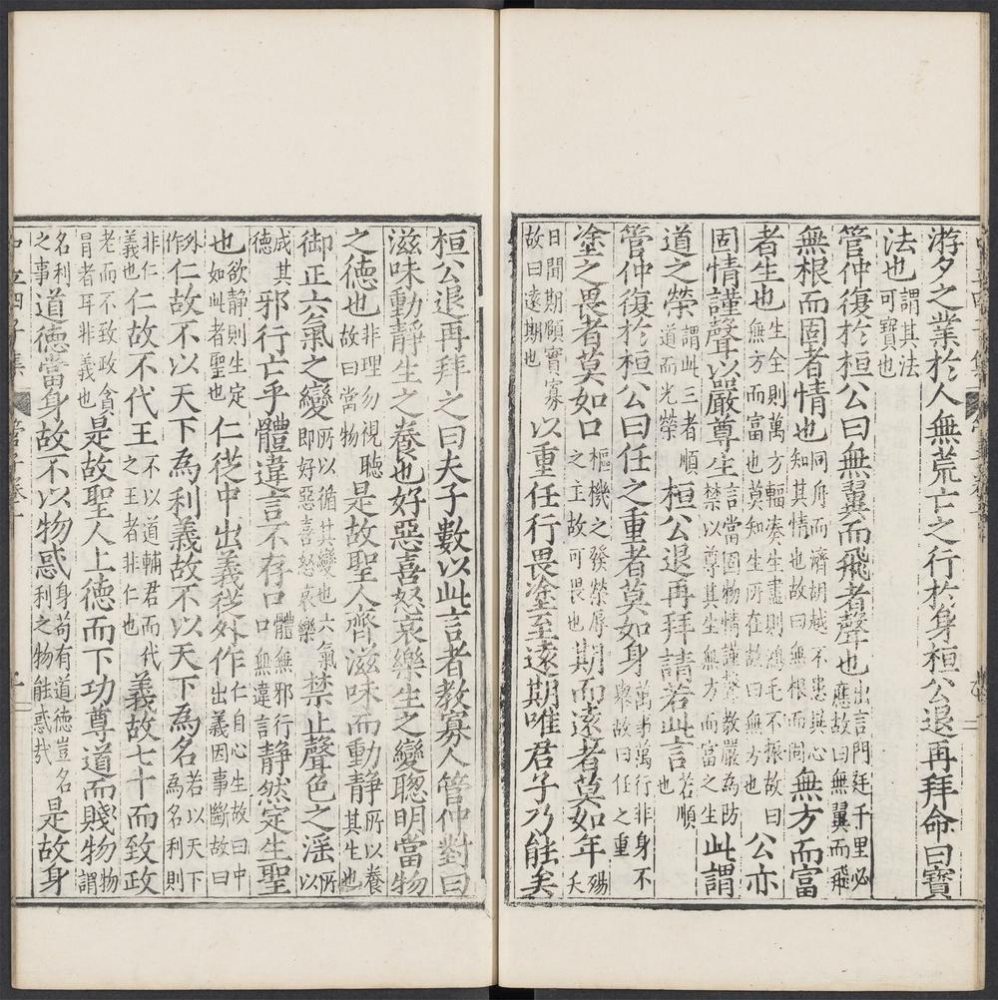 游夕之業於人無荒亡之行於身桓公退再拜命曰寶
法也謂其法可寶也
管仲復於桓公曰無翼而飛者聲也出言門廷千里必應故曰無翼而飛
無根而固者情也同舟而濟胡越不患異心知其情也故曰無根而固無方而富
者生也生全則萬方輻湊生盡則鴻毛不振故曰無方而富也莫知生所在故曰無方也公亦
固情謹聲以嚴尊生言當固物情謹聲教嚴為防禁以尊其生無方而富之生此謂
道之榮謂此三者順道而光榮桓公退再拜請若此言若順也
管仲復於桓公曰任之重者莫如身萬事萬行非身不舉故曰任之重
塗之畏者莫如口樞機之發榮辱之主故可畏也期而遠者莫如年殤夭
日聞期頤實寡故曰遠期也以重任行畏塗至遠期唯君子乃能矣
桓公退再拜之曰夫子數以此言者教寡人管仲對曰
滋味動靜生之養也好惡喜怒哀樂生之變聰明當物
之德也非理勿視聽故曰當物是故聖人齊滋味而動靜所以養其生也
御正六氣之變所以循其變也六氣即好惡喜怒哀樂禁止聲色之淫所以
成其德邪行亡乎體違言不存口體無邪行口無違言靜然定生聖
也欲靜則生定如此者聖也仁從中出義從外作仁自心生故曰中出義因事斷故曰
外作仁故不以天下為利義故不以天下為名若以天下為名利則
非仁義也仁故不代王不以道輔君而代之王者非仁也義故七十而致政
老而不致政貪冒者耳非義也是故聖人上德而下功尊道而賤物物謂
名利之事道德當身故不以物惑身苟有道德豈名利之物能惑哉是故身